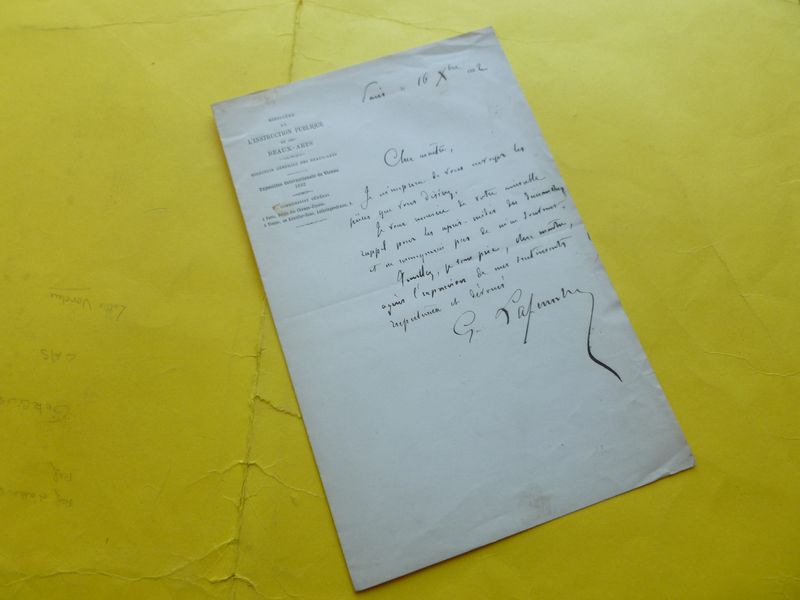 Paris 16 Xbre
MINISTÈRE
DE
L'INSTRUCTION PUBLIQUE
ET DES
BEAUX-ARTS
DIRECTION GÉNÉRALE DES BEAUX-ARTS
Exposition Internationale de Vienne
1882
COMMISSARIAT GÉNÉRAL
à Paris, Palais des Champs-Élysées,
à Vienne,
Cher maître,
Je m'empresse de vous envoyer les
pièces que vous désirez.
Je vous remercie de votre aimable
rappel pour les après-midi du
et ne manquerai pas de m'en souvenir.
Veuillez, je vous prie, cher maître,
agréer l'expression de mes sentiments
respectueux et dévoués
G. Lafenestre